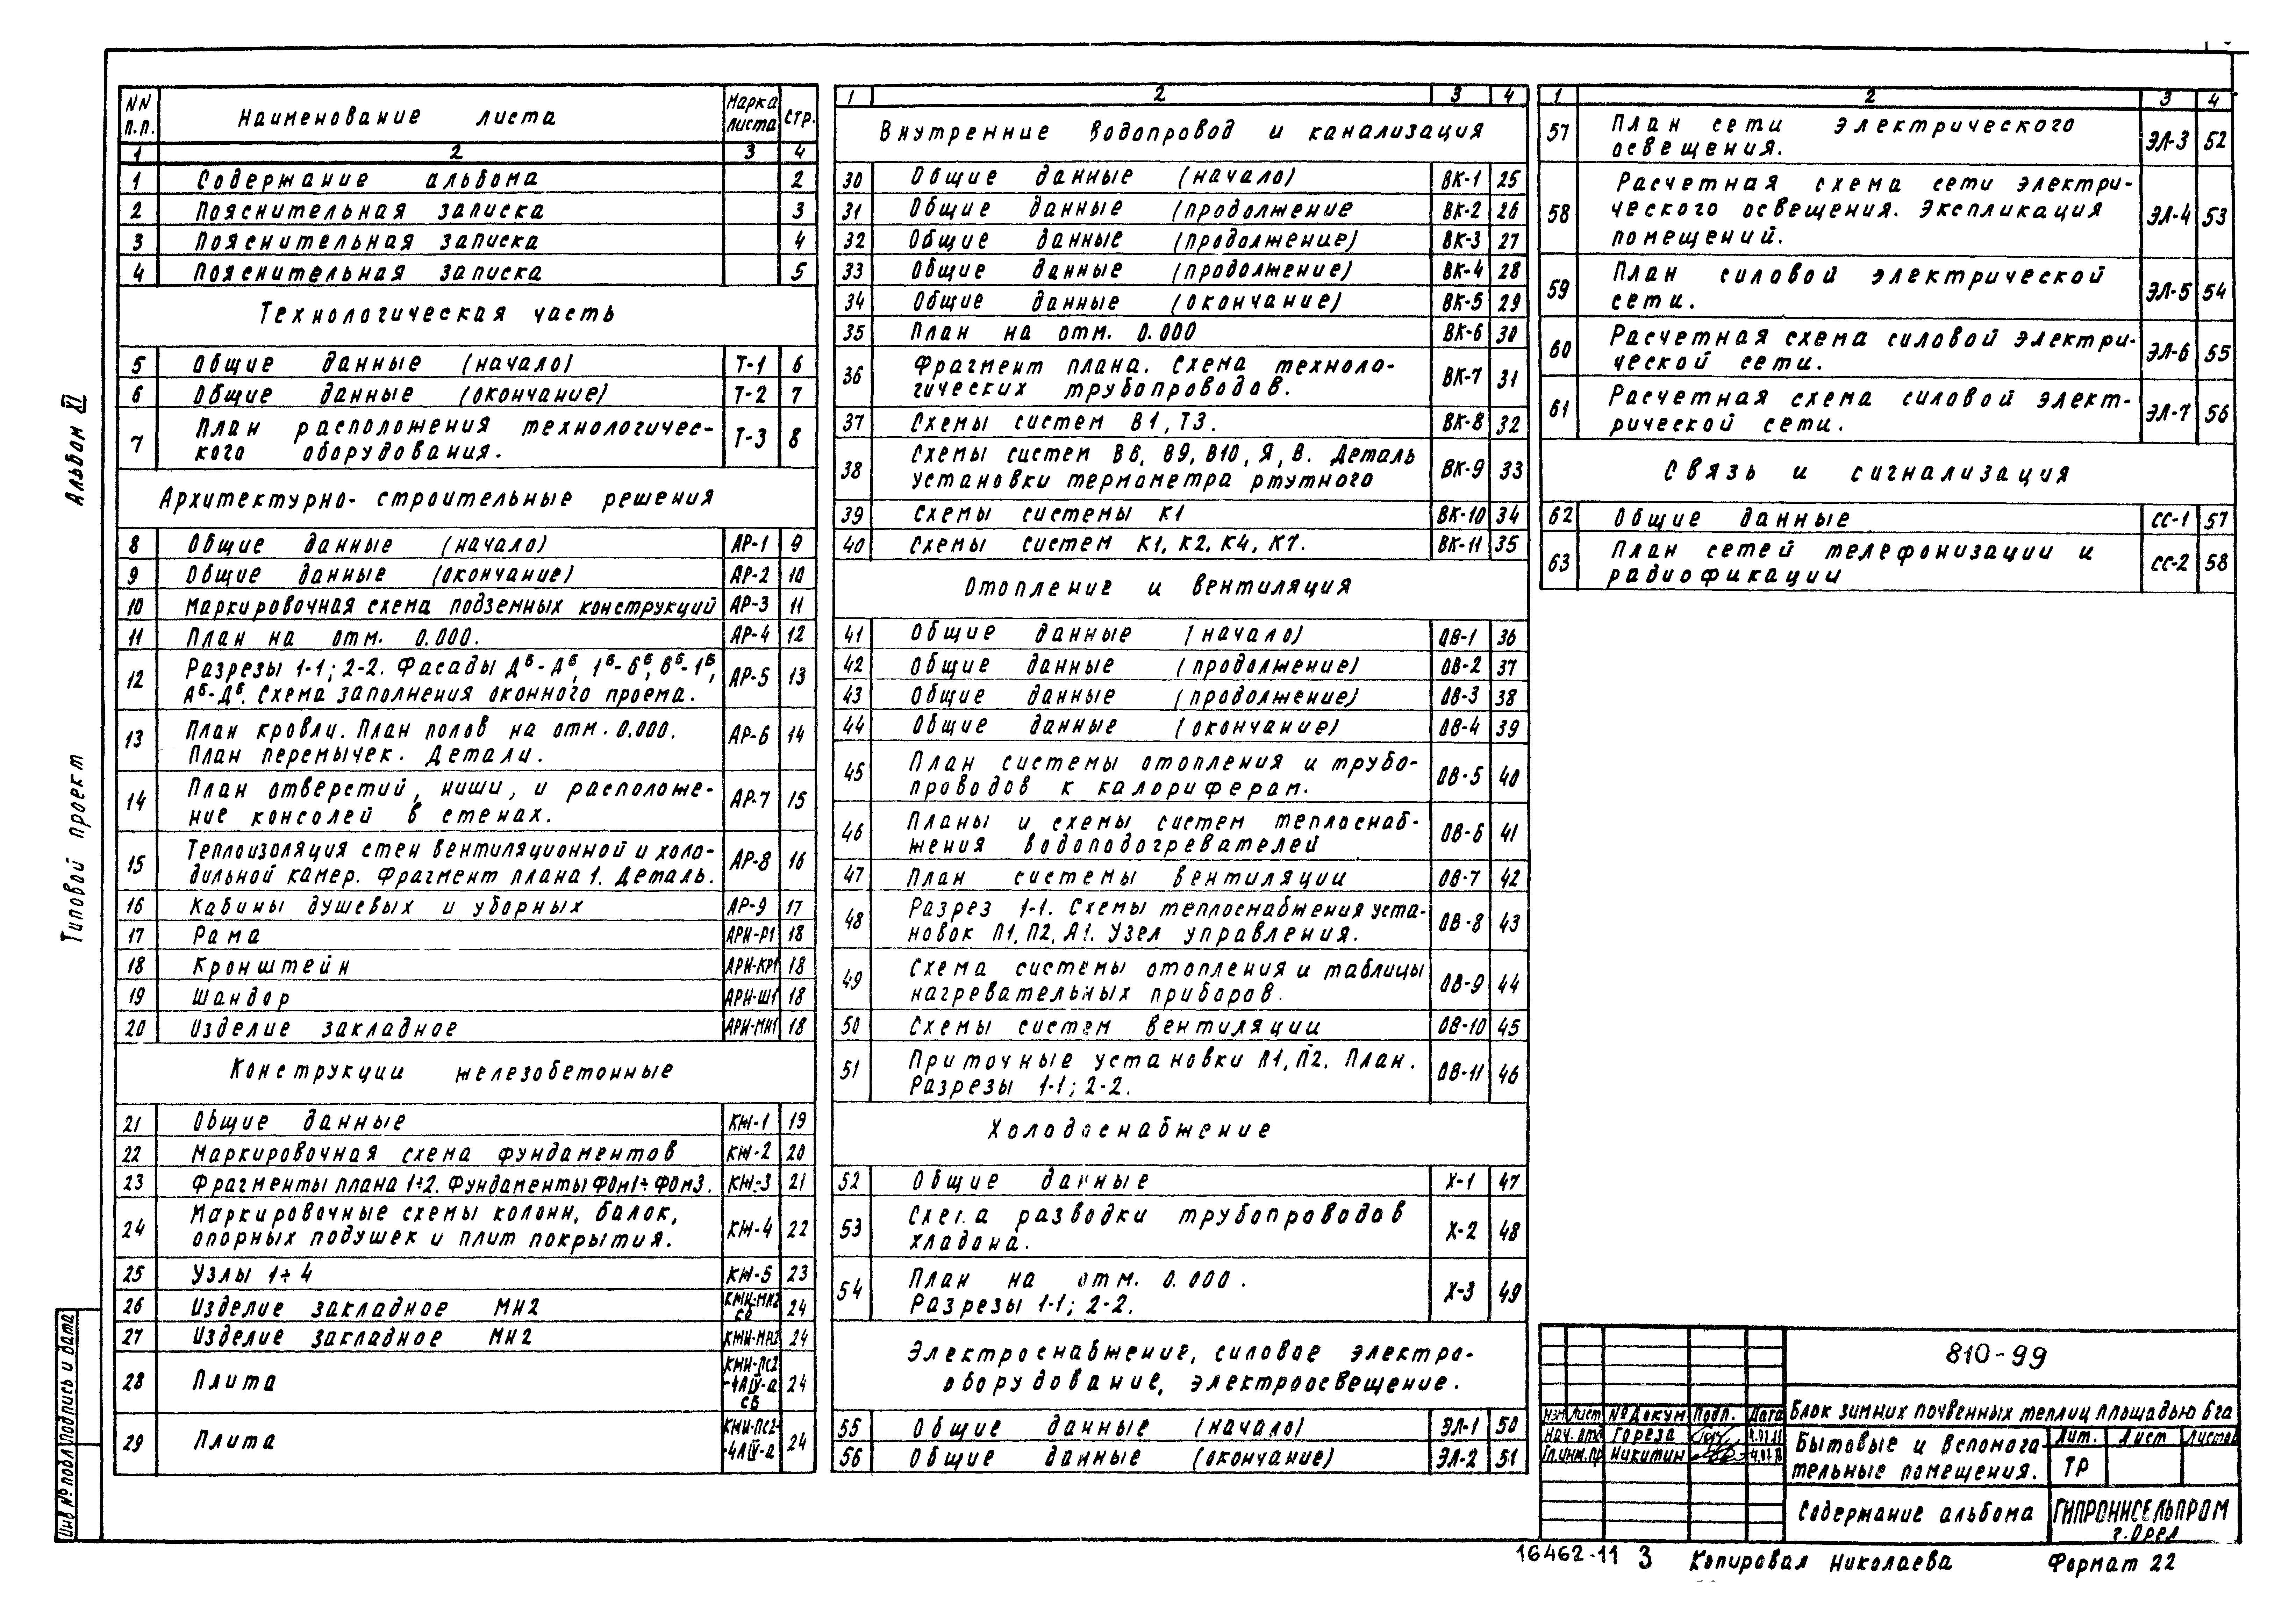 Альбом XI
Типовой проект
NN п.п. Наименование листа Марка листа Стр.
1 2 3 4
1 Содержание альбома 2
2 Пояснительная записка 3
3 Пояснительная записка 4
4 Пояснительная записка 5
Технологическая часть
5 Общие данные (начало) Т-1 6
6 Общие данные (окончание) Т-2 7
7 План расположения технологичес-
кого оборудования. Т-3 8
Архитектурно-строительные решения
8 Общие данные (начало) АР-1 9
9 Общие данные (окончание) АР-2 10
10 Маркировочная схема подземных конструкций АР-3 11
11 План на отм. 0.000. АР-4 12
12 Разрезы 1-1; 2-2. Фасады Дᵇ-Аᵇ, 1ᵇ-6ᵇ, 6ᵇ-1ᵇ,
Аᵇ-Дᵇ. Схема заполнения оконного проема. АР-5 13
13 План кровли. План полов на отм. 0.000.
План перемычек. Детали. АР-6 14
14 План отверстий, ниши, и расположе-
ние консолей в стенах. АР-7 15
15 Теплоизоляция стен вентиляционной и холо-
дильной камер. Фрагмент плана 1. Деталь. АР-8 16
16 Кабины душевых и уборных АР-9 17
17 Рама АРИ-Р1 18
18 Кронштейн АРИ-КР1 18
19 Шандор АРИ-Ш1 18
20 Изделие закладное АРИ-МН1 18
Конструкции железобетонные
21 Общие данные КЖ-1 19
22 Маркировочная схема фундаментов КЖ-2 20
23 Фрагменты плана 1÷2. Фундаменты ФОм1÷ФОм3. КЖ-3 21
24 Маркировочные схемы колонн, балок,
опорных подушек и плит покрытия. КЖ-4 22
25 Узлы 1÷4 КЖ-5 23
26 Изделие закладное МН2 КЖИ-МН2 СБ 24
27 Изделие закладное МН2 КЖИ-МН2 24
28 Плита КЖИ-ПС2
-4АIV-а
СБ 24
29 Плита КЖИ-ПС2-
-4АIV-а 24
1 2 3 4
Внутренние водопровод и канализация
30 Общие данные (начало) ВК-1 25
31 Общие данные (продолжение ВК-2 26
32 Общие данные (продолжение) ВК-3 27
33 Общие данные (продолжение) ВК-4 28
34 Общие данные (окончание) ВК-5 29
35 План на отм. 0.000 ВК-6 30
36 Фрагмент плана. Схема техноло-
гических трубопроводов. ВК-7 31
37 Схемы систем В1, Т3. ВК-8 32
38 Схемы систем В6, В9, В10, Я, В. Деталь
установки термометра ртутного ВК-9 33
39 Схемы системы К1 ВК-10 34
40 Схемы систем К1, К2, К4, К7. ВК-11 35
Отопление и вентиляция
41 Общие данные (начало) ОВ-1 36
42 Общие данные (продолжение) ОВ-2 37
43 Общие данные (продолжение) ОВ-3 38
44 Общие данные (окончание) ОВ-4 39
45 План системы отопления и трубо-
проводов к калориферам. ОВ-5 40
46 Планы и схемы систем теплоснаб-
жения водоподогревателей ОВ-6 41
47 План системы вентиляции ОВ-7 42
48 Разрез 1-1. Схемы теплоснабжения уста-
новок П1, П2, А1. Узел управления. ОВ-8 43
49 Схема системы отопления и таблицы
нагревательных приборов. ОВ-9 44
50 Схемы систем вентиляции ОВ-10 45
51 Приточные установки П1, П2. План.
Разрезы 1-1; 2-2. ОВ-11 46
Холодоснабжение
52 Общие данные Х-1 47
53 Схема разводки трубопроводов
хладона. Х-2 48
54 План на отм. 0.000.
Разрезы 1-1; 2-2. Х-3 49
Электроснабжение, силовое электро-
оборудование, электроосвещение.
55 Общие данные (начало) ЭЛ-1 50
56 Общие данные (окончание) ЭЛ-2 51
1 2 3 4
57 План сети электрического
освещения. ЭЛ-3 52
58 Расчетная схема сети электри-
ческого освещения. Экспликация
помещений. ЭЛ-4 53
59 План силовой электрической
сети. ЭЛ-5 54
60 Расчетная схема силовой электри-
ческой сети. ЭЛ-6 55
61 Расчетная схема силовой элект-
рической сети. ЭЛ-7 56
Связь и сигнализация
62 Общие данные СС-1 57
63 План сетей телефонизации и
радиофикации СС-2 58
810-99
Изм Лист № Докум Подп. Дата
Нач. отд Гореза
Гл.инж.пр Никитин
Блок зимних почвенных теплиц площадью 6га
Бытовые и вспомога
тельные помещения.
Лит. Лист Листов
ТР
Содержание альбома
ГИПРОНИСЕЛЬПРОМ
г. Орел
Инв № подл Подпись и дата
16462-11 3 Копировал Николаева Формат 22